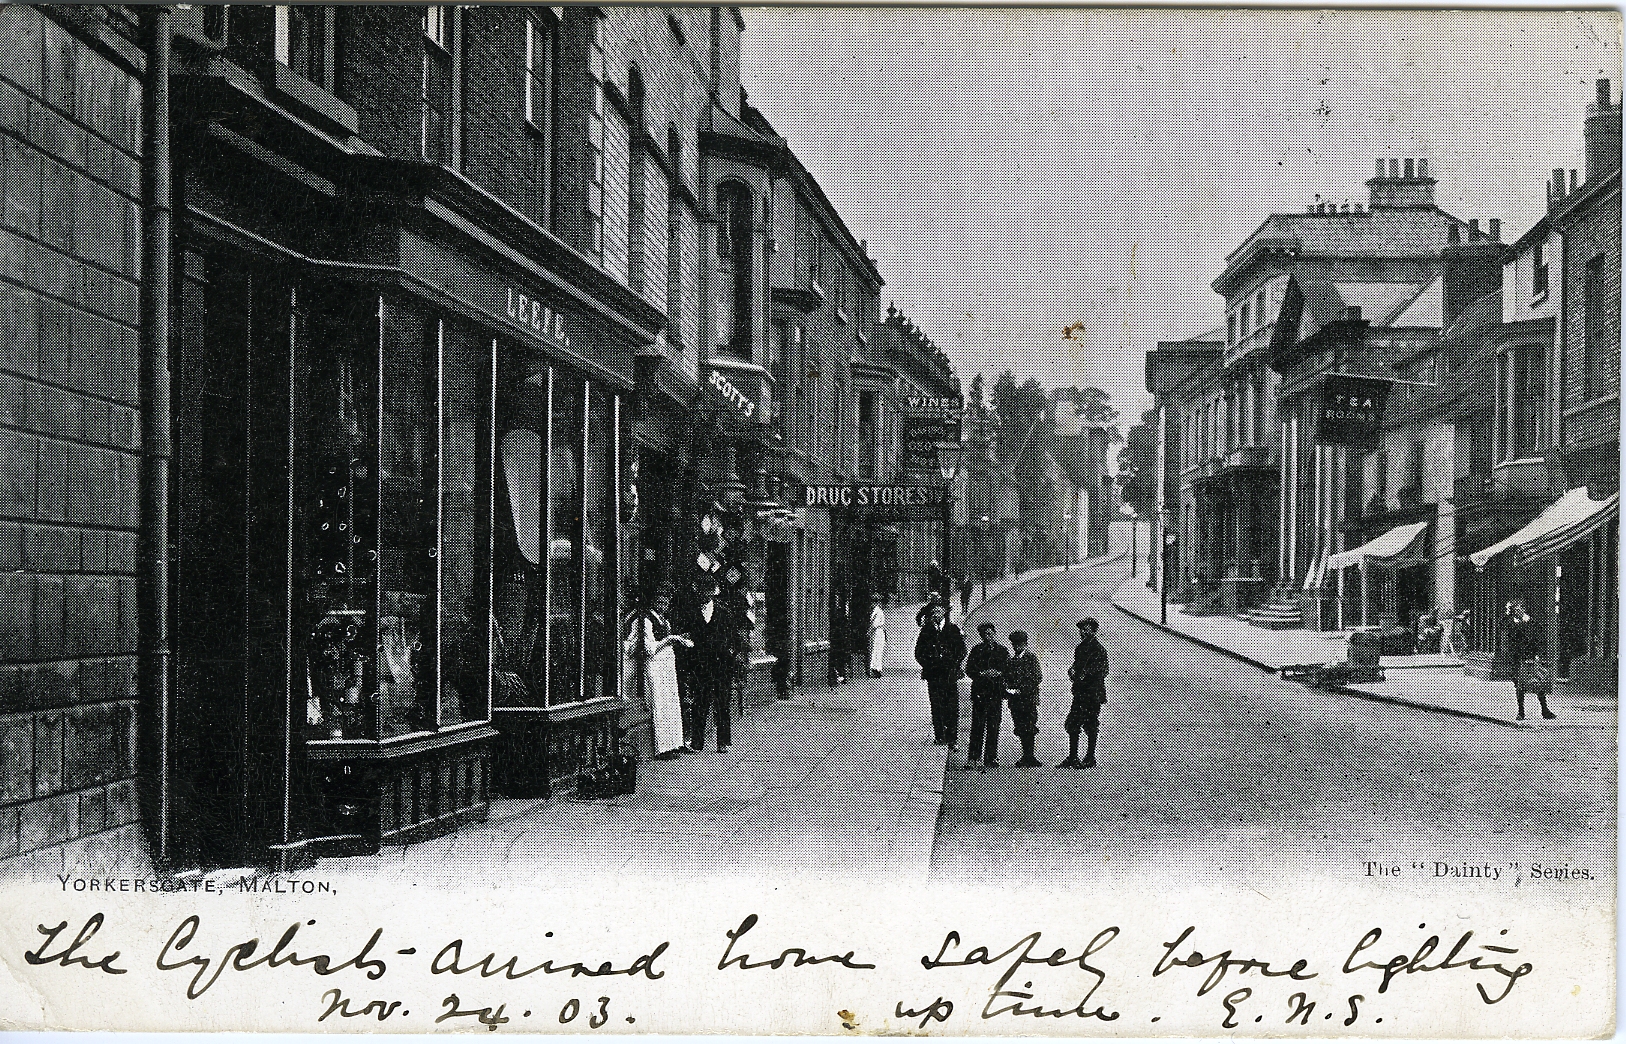 SCOTT'S
WINES
DRUG STORES
TEA
ROOMS
YORKERSGATE, MALTON,
The "Dainty" Series.
The Cyclists arrived home safely before lighting
up time. E.N.S.
Nov. 24. 03.